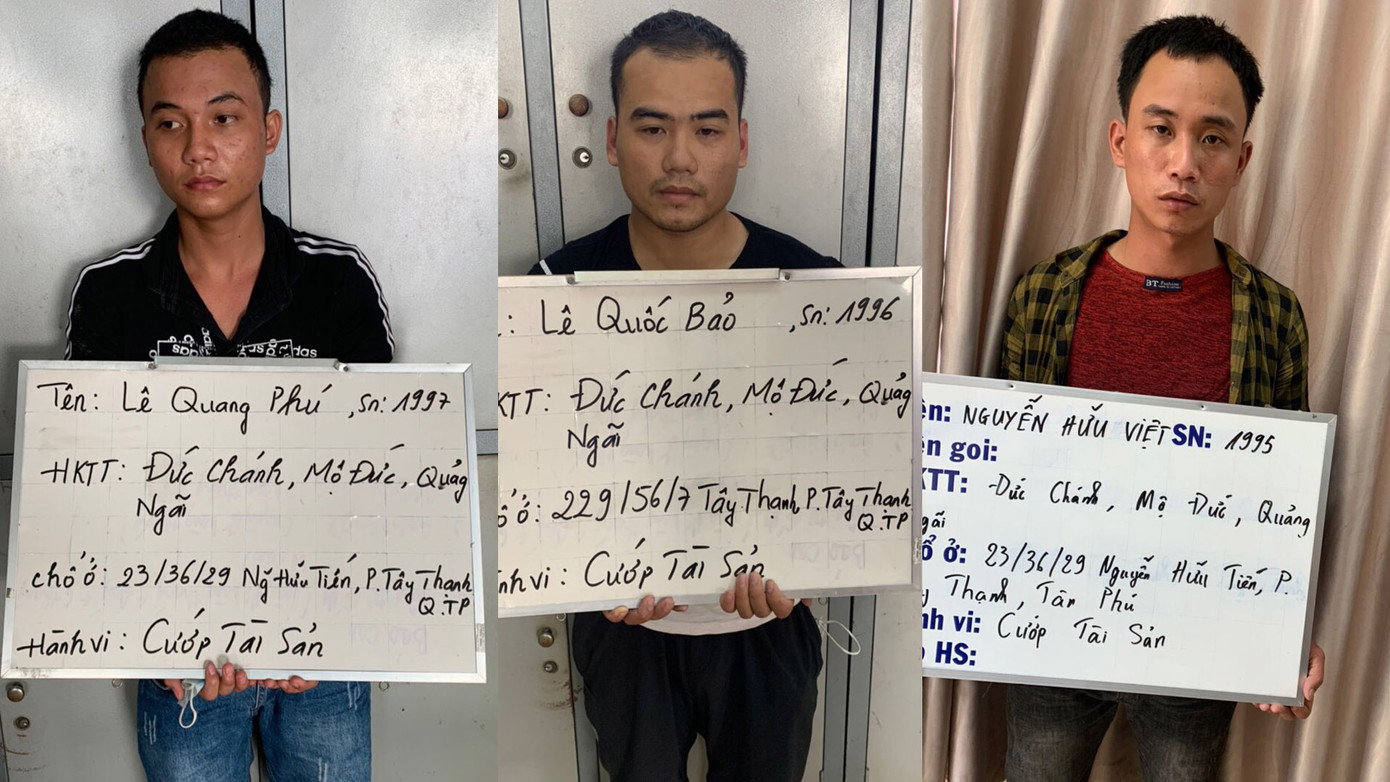 Tên: Lê Quang Phú , sn: 1997
HKTT: Đức Chánh, Mộ Đức, Quảng
Ngãi
chỗ ở: 23/36/29 Ng̃ Hữu Tiến, P. Tây Thạnh
Q.TP
Hành vi: Cướp Tài Sản
: Lê Quốc Bảo , sn: 1996
KTT: Đức Chánh, Mộ Đức, Quảng
Ngãi
ỗ ở: 229/56/7 Tây Thạnh, P. Tây Thạnh
Q.TP
nh vi: Cướp Tài Sản
BT. Fashion
ên: NGUYỄN HỮU VIỆT SN: 1995
ên gọi:
KTT: Đức Chánh, Mộ Đức, Quảng
gãi
ổ ở: 23/36/29 Nguyễn Hữu Tiến, P.
y Thạnh, Tân Phú
nh vi: Cướp Tài Sản
HS: